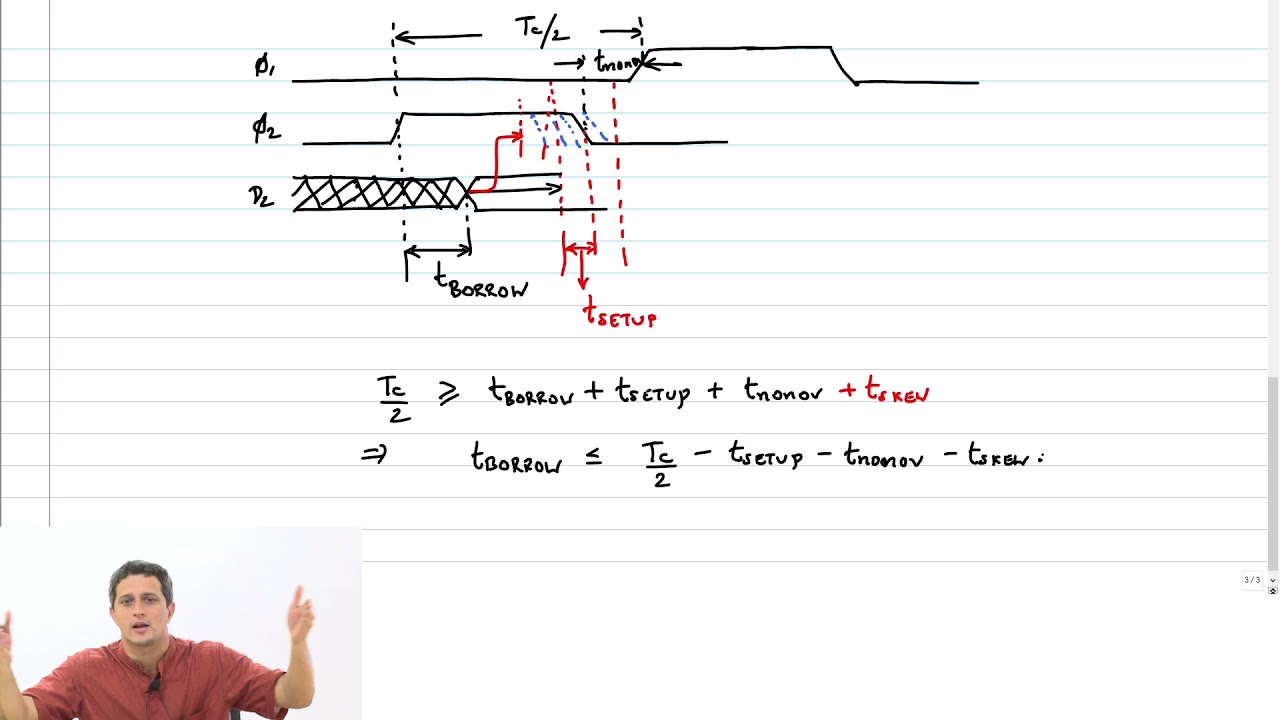 Tc/2
ϕ1 tnonov
ϕ2
D2
tBORROW
tSETUP
Tc/2 ≥ tBORROW + tSETUP + tnonov + tSKEW
⇒ tBORROW ≤ Tc/2 - tSETUP - tnonov - tSKEW.
3/3